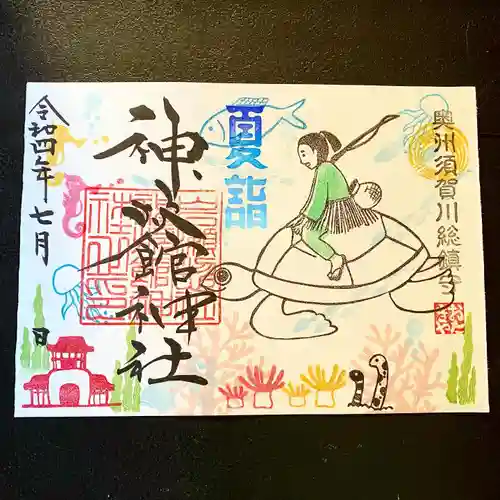 奥州須賀川総鎮守
夏詣
神炊館神社
令和四年七月
日